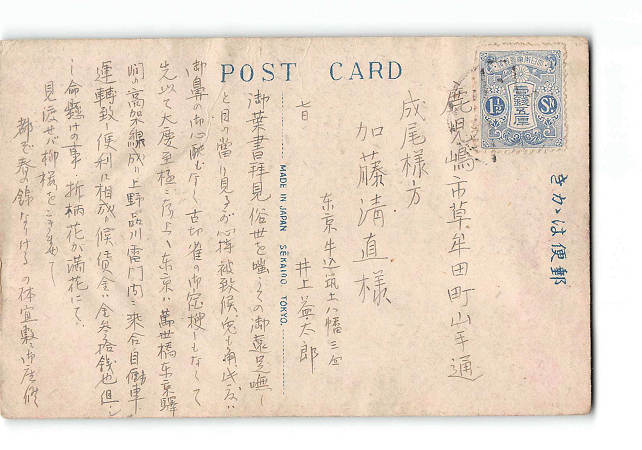 POST CARD
きかは便郵
大日本帝國郵便
壹錢五厘
1½ Sn
MADE IN JAPAN SEKAIDO. TOKYO.
鹿児嶋市草牟田町山手通
成尾様方
加藤清直様
東京牛込筑土八幡三五
井上益太郎
七日
御葉書拝見俗世を嗤うての御遠足嘸し
と目の當り見るが心持被致候
御鼻の御心配もなく舌切雀の御宿捜しもなくて
先以て大慶至極に存上候 東京ハ萬世橋東京驛
間の高架線成り上野品川雷門内に乗合自働車
運轉致し便利に相成り候賃金ハ金参拾銭也但し
命懸けの事、折柄花が満花にて
見渡せバ柳桜をこきまぜて
都ぞ春の錦なりける の体宜敷御座候